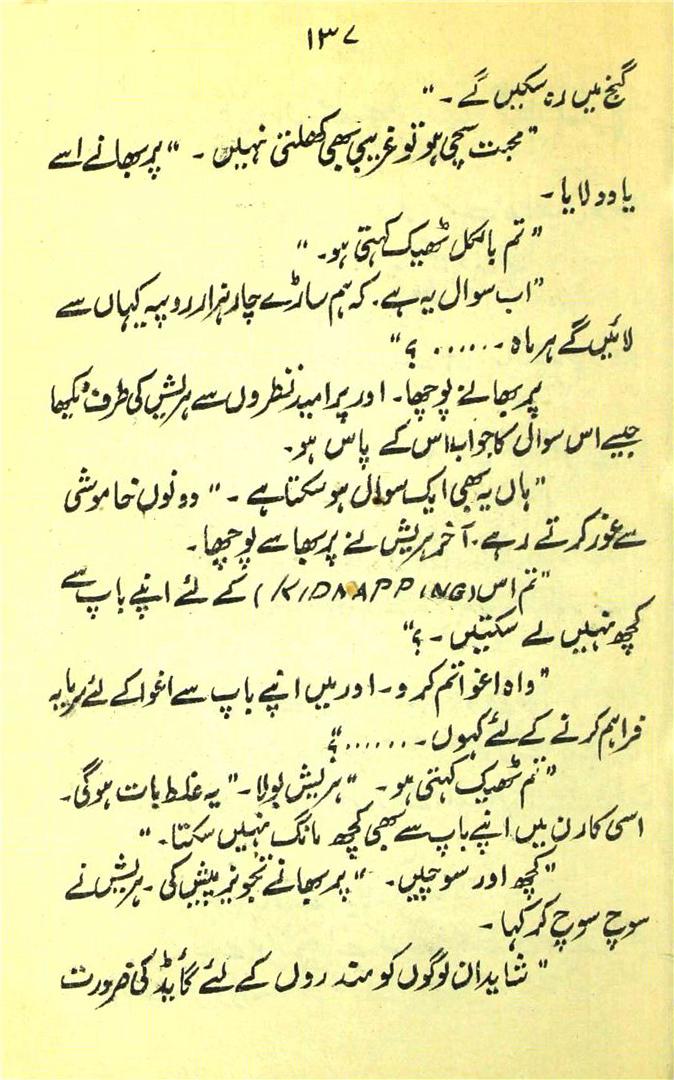 ۱۳۷
گنج میں رہ سکیں گے۔"
"محبت سچی ہو تو غریبی بھی کھلتی نہیں۔" پربھا نے اسے
یاد دلایا۔
"تم بالکل ٹھیک کہتی ہو۔"
"اب سوال یہ ہے۔ کہ ہم ساڑے چار ہزار روپیہ کہاں سے
لائیں گے ہر ماہ ۔......؟"
پربھا نے پوچھا۔ اور پر امید نظروں سے ہریش کی طرف دیکھا
جیسے اس سوال کا جواب اس کے پاس ہو۔
"ہاں یہ بھی ایک سوال ہو سکتا ہے۔" دونوں خاموشی
سے غور کرتے رہے۔ آخر ہریش نے پربھا سے پوچھا۔
"تم اس (KIDNAPPING) کے لئے اپنے باپ سے
کچھ نہیں لے سکتیں۔؟"
"واہ اغوا تم کرو۔ اور میں اپنے باپ سے اغوا کے لئے سرمایہ
فراہم کرنے کے لئے کہوں۔......؟"
"تم ٹھیک کہتی ہو۔" ہریش بولا۔ "یہ غلط بات ہوگی۔
اسی کارن میں اپنے باپ سے بھی کچھ مانگ نہیں سکتا۔"
"کچھ اور سوچیں۔" پربھا نے تجویز پیش کی۔ ہریش نے
سوچ سوچ کر کہا۔
"شاید ان لوگوں کو مندروں کے لئے گائیڈ کی ضرورت